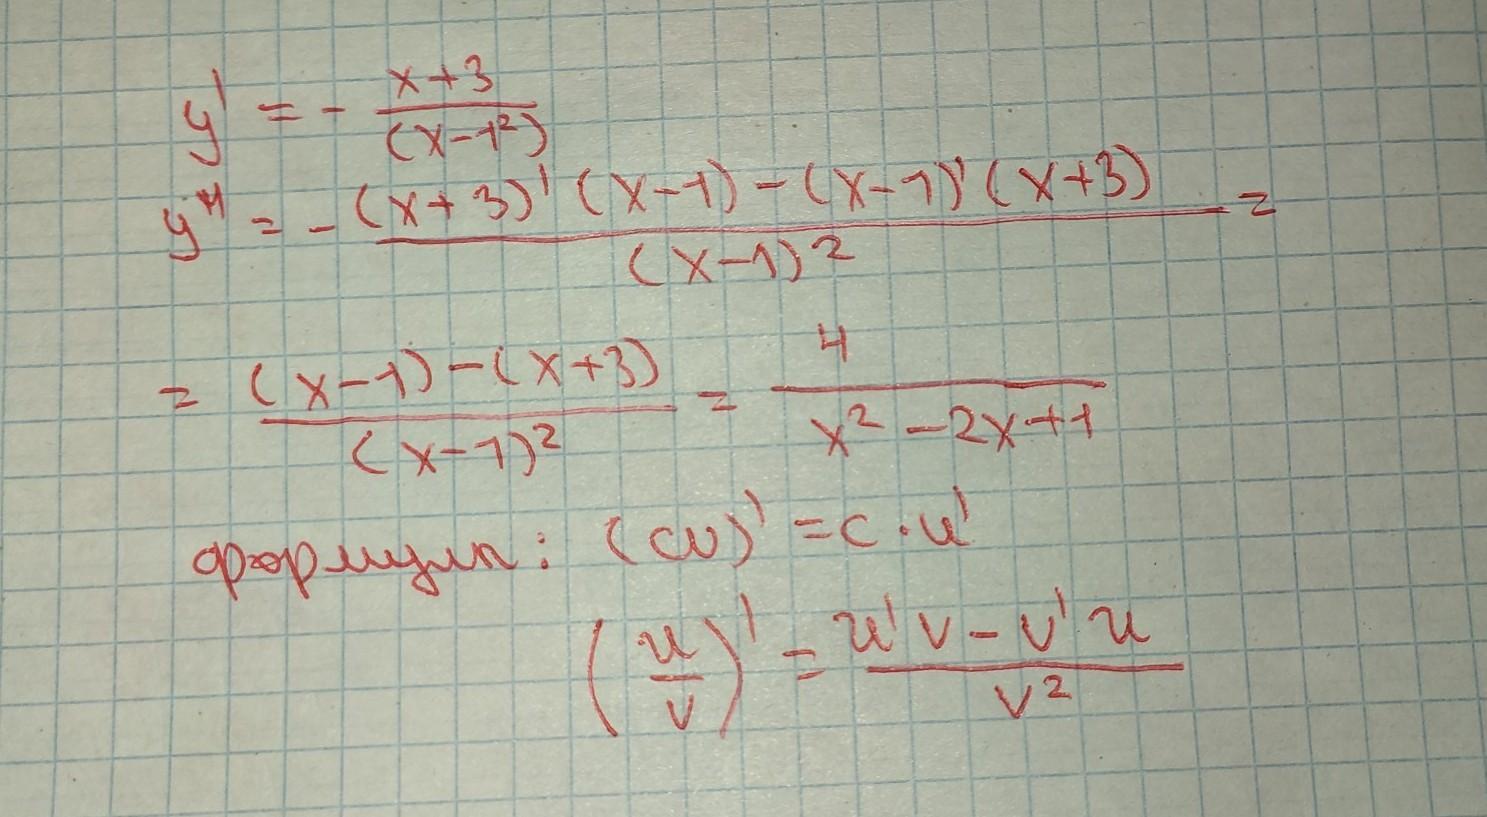 y' = - x+3 / (x-1²)
y" = - (x+3)' (x-1) - (x-1)' (x+3) / (x-1)² =
= (x-1) - (x+3) / (x-1)² = 4 / x² - 2x + 1
формулы: (cu)' = c · u'
(u / v)' = u' v - v' u / v²